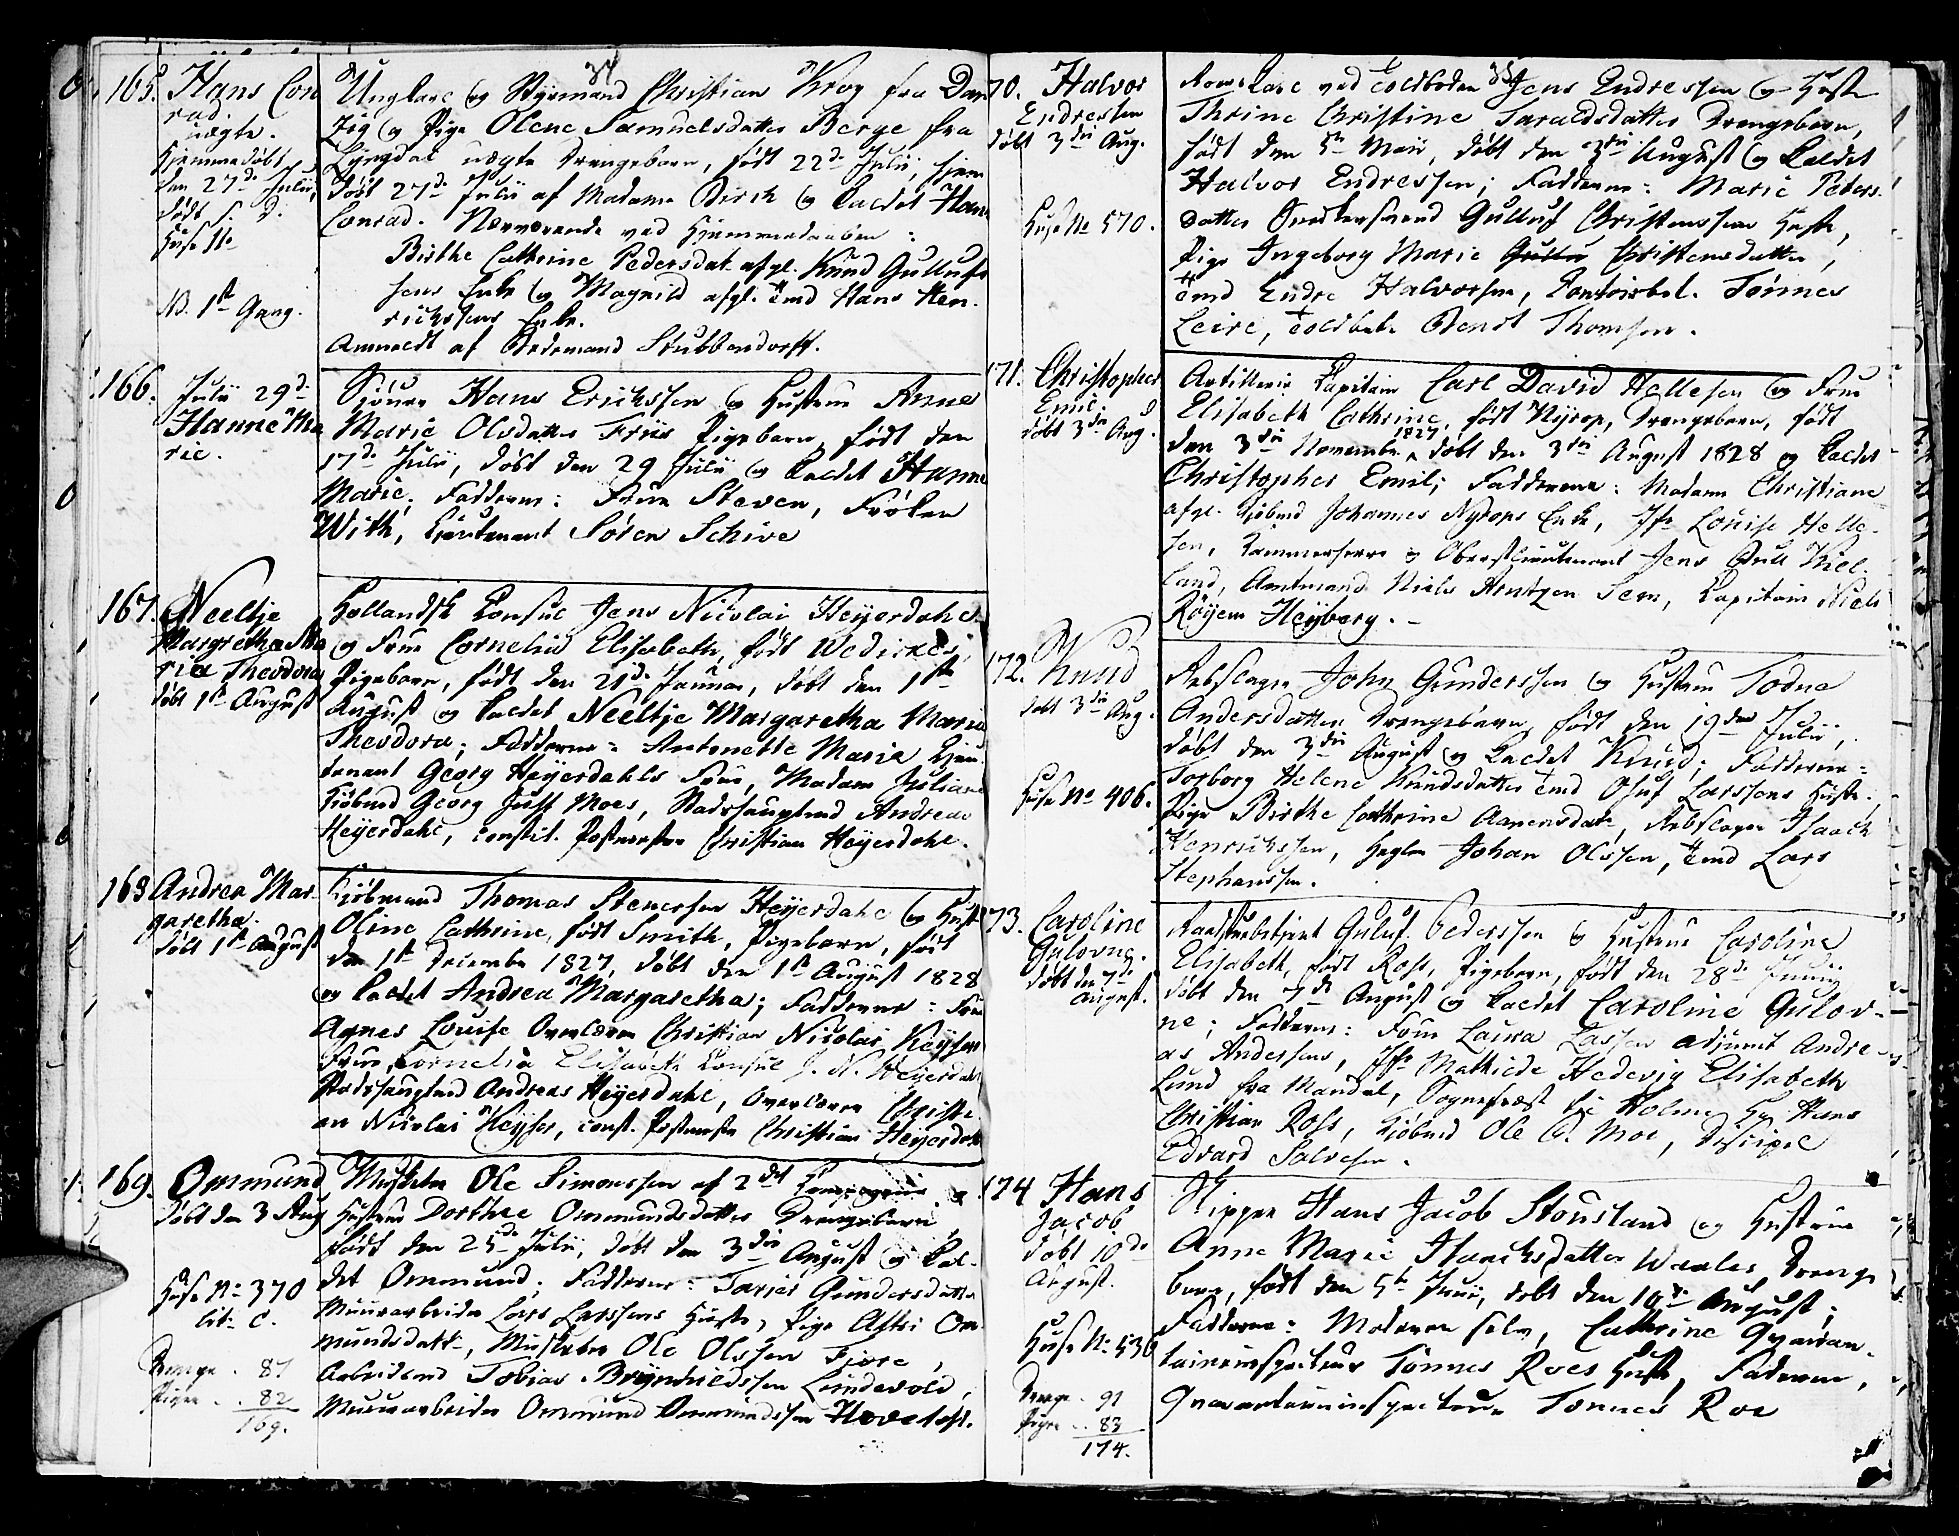 34
165. Hans Con
rad.
uægte.
hjemmedøbt
den 27de Julii,
født s. d.
Huse No
N. 1ste Gang.
Ungkarl og Styrmand Christian Krog fra Dan
zig og Pige Olene Samuelsdatter Berge fra
Lyngdal uægte Drengebarn, født 22de Julii, hjem
døbt 27de Julii af Madame Birch og kaldet Hans
Conrad. Nærværende ved Hjemmedaaben:
Birthe Cathrine Pedersdat. afgl. Knud Gullufs
sens Enke og Magnild afgl. Tmd Hans Hen
richssens Enke.
Anmeldt af Bedemand Stubbendorff.
166.
Julii 29de
Hanne Ma
rie.
Sjouer Hans Erichssen og Hustrue Anne
Marie Olsdatter Friis Pigebarn, født den
17de Julii, døbt den 29 Julii og kaldet Hanne
Marie; Fadderne: Frue Steven, Frøken
With, Lieutenant Søren Schive
167. Neeltje
Margretha Ma
ria Theodora
døbt 1ste August
Hollandsk Consul Jens Nicolai Heyerdahl
og Frue Cornelia Elisabeth, født Wedikes,
Pigebarn, født den 21de Januar, døbt den 1ste
August og kaldet Neeltje Margaretha Maria
Theodora; Fadderne: Antonette Marie Lieu
tenant Georg Heyerdahls Frue, Madam Juliane
Kjøbmd Georg Just Moes, Stadshauptmd Andreas
Heyerdahl, constit. Postmester Christian Heyerdahl.
168 Andrea Mar-
garetha.
døbt 1ste August
Kjøbmand Thomas Stenersen Heyerdahl og Hust.
Oline Cathrine, født Smith, Pigebarn, født
den 1ste December 1827, døbt den 1ste August 1828
og kaldet Andrea Margaretha; Fadderne: Frue
Agnes Louise Overlærer Christian Nicolai Keyser
Frue Cornelia Elisabeth Consul J. N. Heyerdahl
Stadshauptmd Andreas Heyerdahl, Overlærer Christi
an Nicolai Keyser, const. Postmester Christian Heyerdahl
169. Ommund
døbt den 3 Aug
Huse No 370
lit. C.
Drenge . 87
Piger . . 82
169.
Musketer Ole Simonssen af 2det Compagnie og
Hustrue Dorthee Ommundsdatter Drengebarn
født den 25de Julii, døbt den 3die August og kal-
det Ommund; Fadderne: Tarjer Gundersdatter
Muurarbeider Lars Larssens Hustr, Pige Astri Om
mundsdatt., Musketer Ole Olssen Fiore,
Arbeidsmd Tobias Brynhildssen Lundevold,
Muurarbeider Ommund Ommundssen Hovelost.
35
170. Halvor
Endressen
døbt 3die Aug.
Huse No 570.
Roerskarl ved Toldboden Jens Endressen og Hustr
Thrine Christine Taraldsdatter Drengebarn,
født den 5te Maii, døbt den 3die August og kaldet
Halvor Endressen; Fadderne: Marie Peders
datter Snedkersvend Gulluf Christenssens Hustr,
Pige Ingeborg Marie Christensdatter,
Tmd Endre Halvorsen, Contoirbet. Tønnes
Leire, Toldbetj. Bendt Thomsen.
171. Christopher
Emil
døbt 3die Aug.
Artillerie Kapitain Carl David Hellesen og Frue
Elisabeth Cathrine, født Nyrop, Drengebarn, født
den 3die November 1827, døbt den 3die August 1828 og kaldet
Christopher Emil; Fadderne: Madam Christiane
afgl. Kjøbmd Johannes Nyrops Enke, Jfr. Louise Helle-
sen, Kammerherre og Oberstlieutenant Jens Bull Kiel-
land, Amtmand Niels Arntzen Sem, Kapitain Niels
Röyem Heyberg. -
172. Knud
døbt 3die Aug.
Huse No 406.
Rebslager John Gunderssen og Hustrue Todne
Andersdatter Drengebarn født den 19de Julii,
døbt den 3die August og kaldet Knud; Fadderne:
Torborg Helene Knudsdatter Tmd Oluf Larssens Hustr,
Pige Birthe Cathrine Aanensdatt, Rebslager Isaach
Henrichssen, Hegler Johan Olssen, Tmd Lars
Stephanssen.
173. Caroline
Gulovne.
døbt den 7de
August.
Raadstuebetjent Guluf. Pederssen og Hustrue Caroline
Elisabeth, født Ross, Pigebarn, født den 28de Junii,
døbt den 7de August og kaldet Caroline Gulov-
ne; Fadderne: Frue Laura Lassen Adjunct Andre-
as Anderssens, Jfr. Mathilde Hedevig Elisabeth
Lund fra Mandal, Sognepræst til Holme Hr Hans
Christian Ross, Kjøbmd Ole C. Moe, Discipel
Edvard Salvesen.
174 Hans
Jacob.
døbt 10de
August.
Huse No 536
Drenge . 91
Piger . . 83
174.
Skipper Hans Jacob Stousland og Hustrue
Anne Marie Isaachsdatter Wærles Drenge
barn, født den 5te Junii, døbt den 10de August;
Fadderne: Moderen selv, Cathrine Qvaran-
taineinspecteur Tønnes Roes Hustr, Faderen,
Qvarantaineinspecteur Tønnes Roe